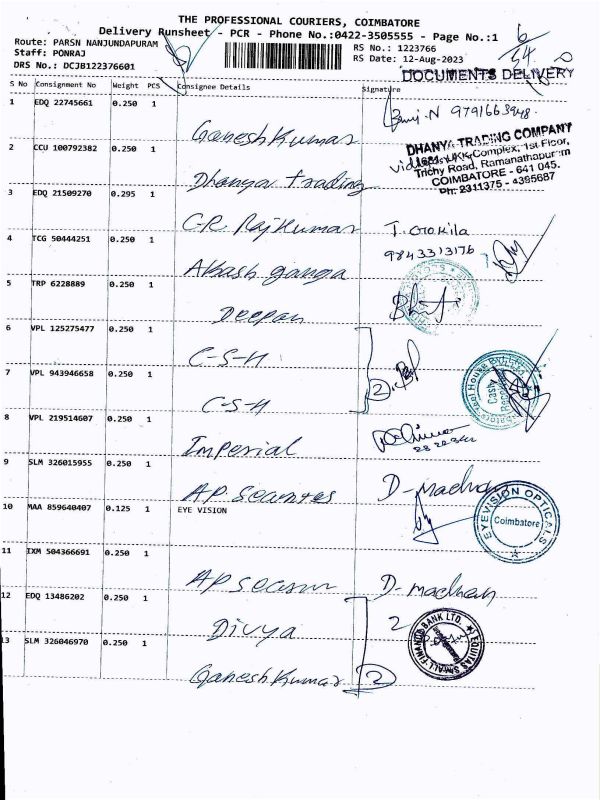 THE PROFESSIONAL COURIERS, COIMBATORE
Delivery Runsheet - PCR - Phone No.:0422-3505555 - Page No.:1
Route: PARSN NANJUNDAPURAM
Staff: PONRAJ
DRS No.: DCJB122376601
RS No.: 1223766
RS Date: 12-Aug-2023
DOCUMENTS DELIVERY
S No Consignment No Weight PCS Consignee Details Signature
1 EDQ 22745661 0.250 1
Ganesh Kumar
N 9791663948
2 CCU 100792382 0.250 1
Dhanya trading
DHANYA TRADING COMPANY
Complex, 1st Floor,
Trichy Road, Ramanathapuram
COIMBATORE - 641 045.
Ph: 2311375 - 4395687
3 EDQ 21509270 0.295 1
C-R. Raj Kumar
9843313176
4 TCG 50444251 0.250 1
Akash ganga
5 TRP 6228889 0.250 1
Deepan
6 VPL 125275477 0.250 1
C-S-H
7 VPL 943946658 0.250 1
C-S-H
2
8 VPL 219514607 0.250 1
Imperial
9 SLM 326015955 0.250 1
AP
D-madhan
10 MAA 859640407 0.125 1 EYE VISION
EYEVISION OPTICALS
Coimbatore
11 IXM 504366691 0.250 1
AP
D-madhan
12 EDQ 13486202 0.250 1
Divya
2
EQUITAS SMALL FINANCE BANK LTD.
13 SLM 326046970 0.250 1
Ganesh Kumar
2